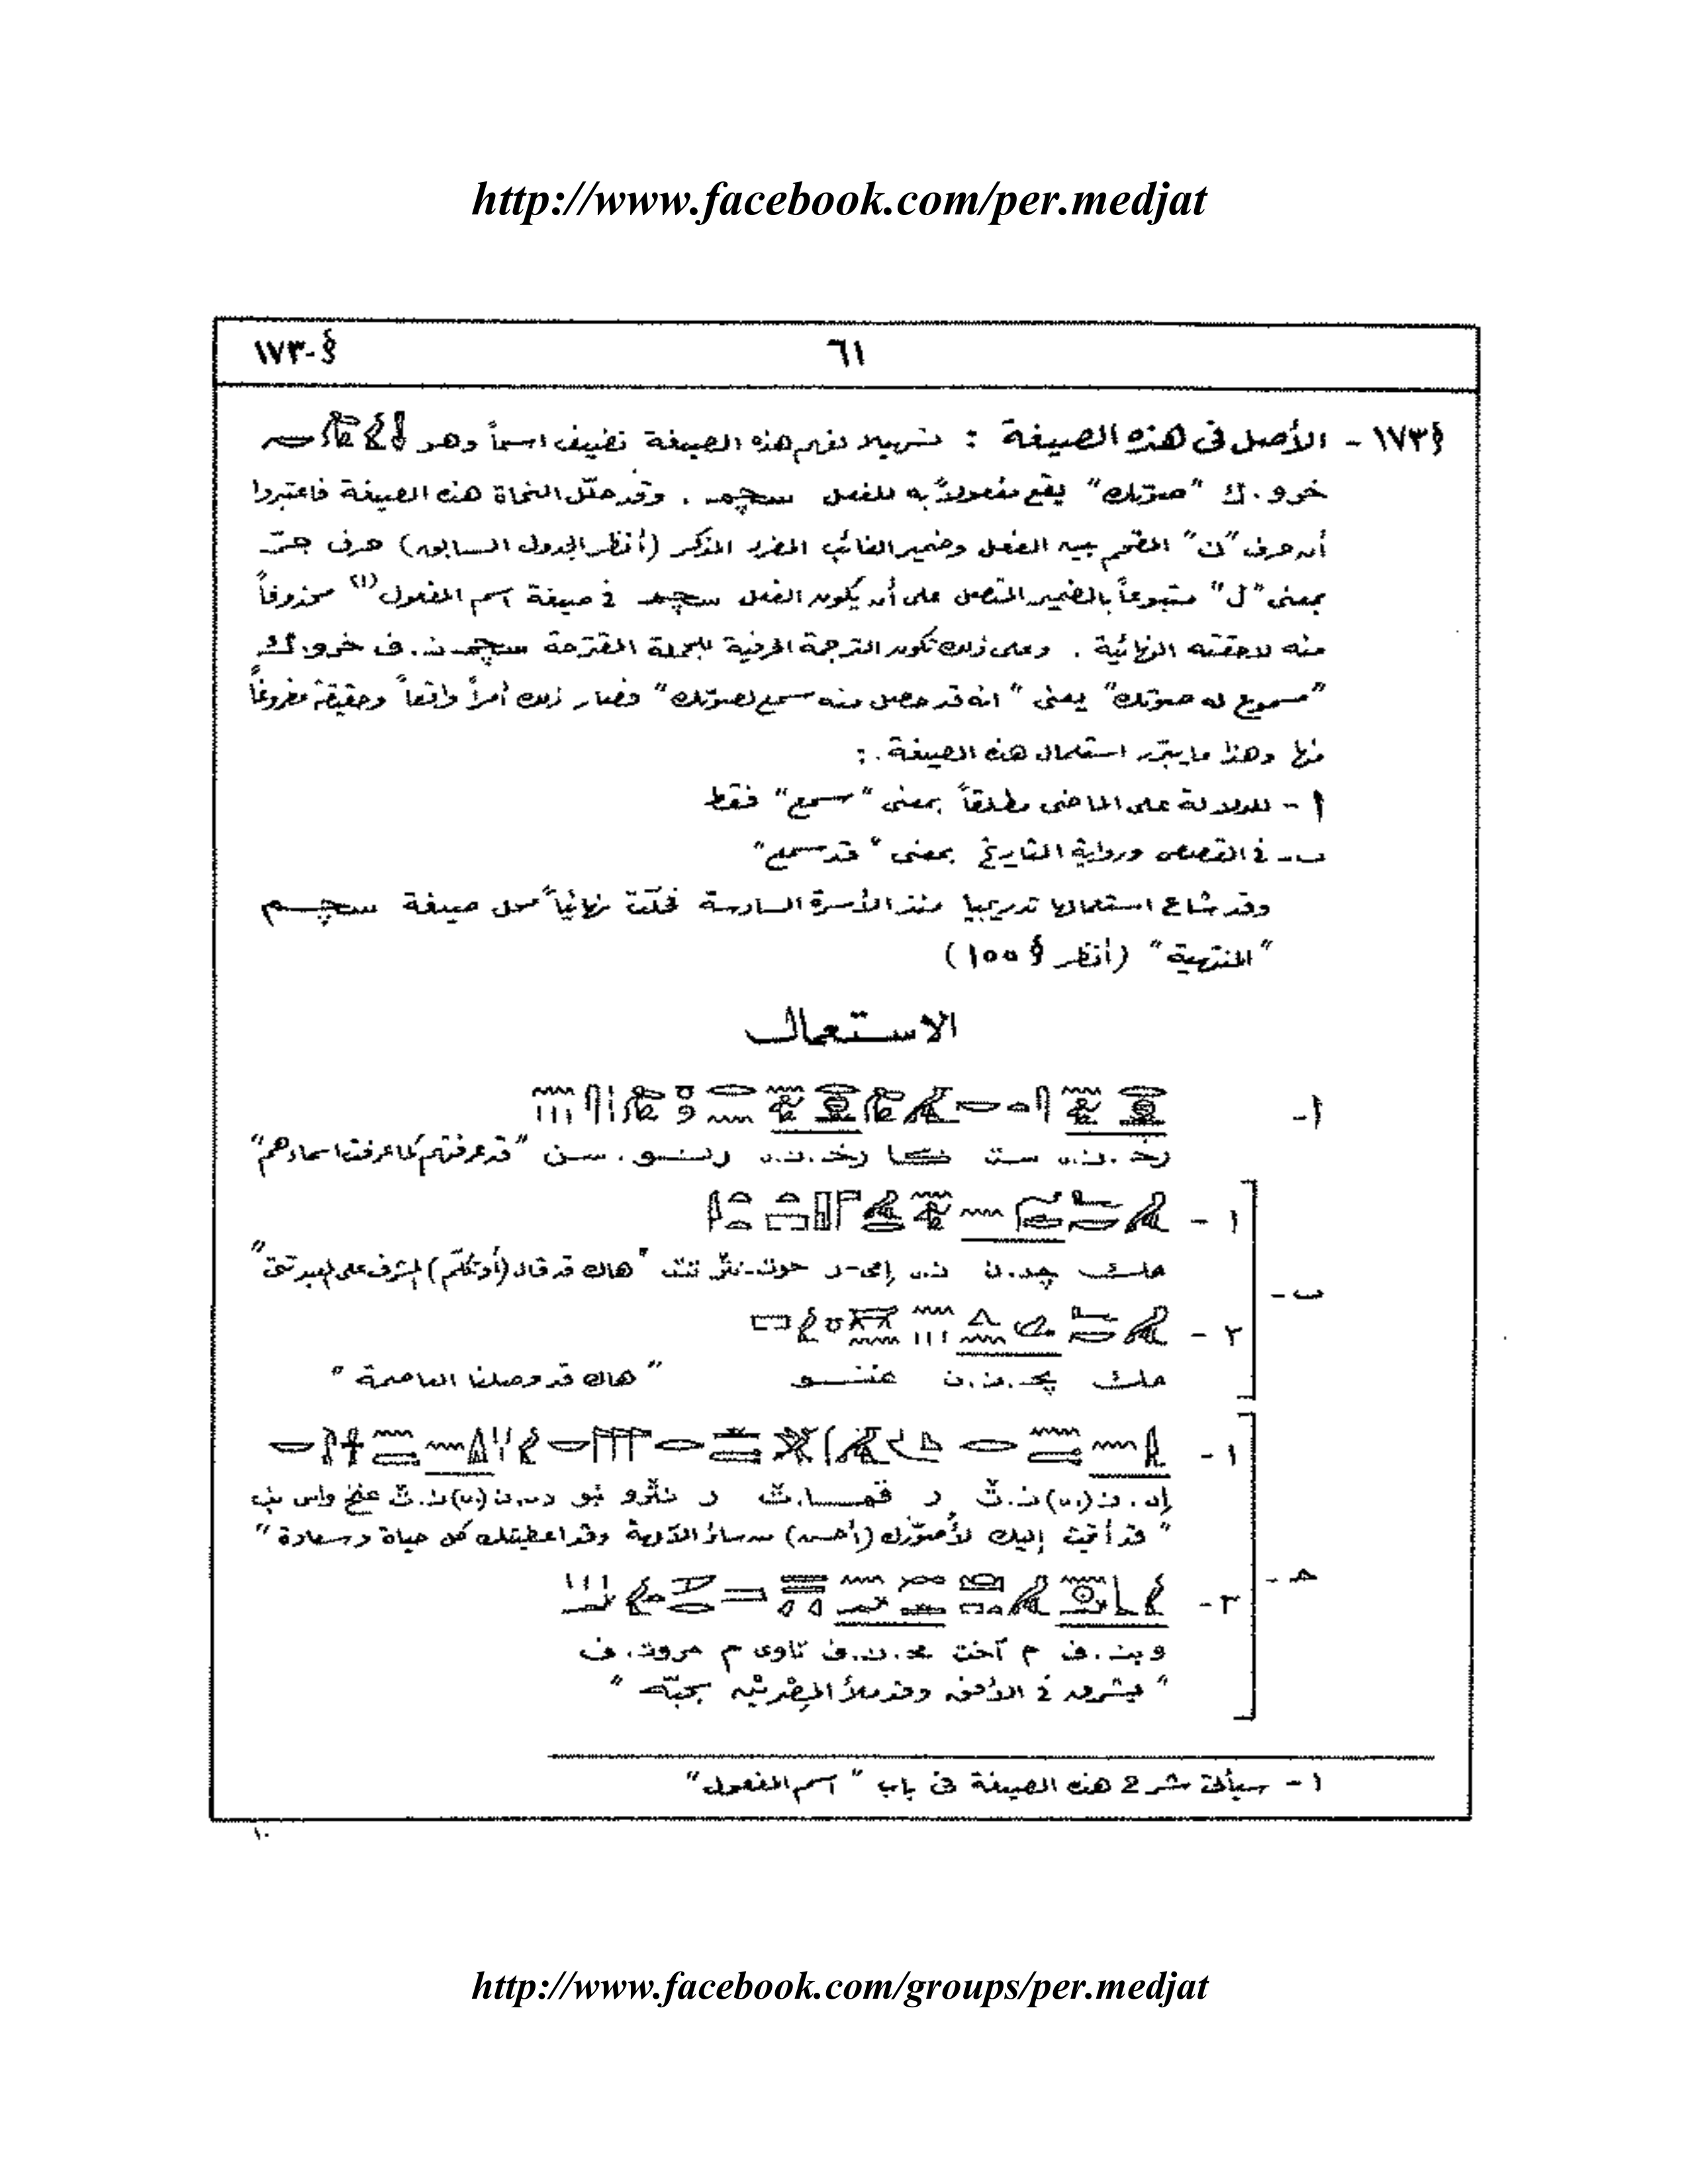 http://www.facebook.com/per.medjat
§-١٧٣
٦١
§١٧٣ - الأصل فى هذه الصيغة : تسهيلا لفهم هذه الصيغة نضيف اسماً وهو
خرو.ك "صوتك" يقع مفعولاً به للفعل سچم . وقد حلّل النحاة هذه الصيغة فاعتبروا
أن حرف "ن" المقحم بين الفعل وضمير الغائب المفرد المذكر (أنظر الجدول السابق) حرف جرّ
بمعنى "ل" متبوعاً بالضمير المتصل على أن يكون الفعل سچم فى صيغة اسم المفعول (١) محذوفاً
منه لاحقته النهائية . وعلى ذلك تكون الترجمة الحرفية للجملة المقترحة سچم.ن.ف خرو.ك
"مسموع له صوتك" يعنى "انه قد حصل منه سمع لصوتك" فصار ذلك أمراً واقعاً وحقيقة مفروغاً
منها وهذا ما يبرّر استعمال هذه الصيغة :
أ - للدلالة على الماضى مطلقاً بمعنى "سمع" فقط
ب - فى القصص ورواية التاريخ بمعنى "قد سمع"
وقد شاع استعمالها تدريجيا منذ الأسرة السادسة فحلّت نهائياً محل صيغة سچم
"المنتهية" (أنظر § ١٥٥)
الاستعمال
أ -
"قد عرفتهم كما عرفت أسماءهم"
ب -
١ -
"هاك قد قال (أو تكلّم) المشرف على المعبد تتى"
٢ -
"هاك قد وصلنا العاصمة"
ج -
١ -
"قد أتيت إليك لأصوّرك (أحسن) من سائر الآلهة وقد أعطيتك كل حياة وسعادة"
٢ -
وبن.ف م آخت مح.ن.ف تاوى م مروت.ف
"يشرق فى الأفق وقد ملأ المصريْن بحبّه"
١ - سيأتى شرح هذه الصيغة فى باب "اسم المفعول"
١٠
http://www.facebook.com/groups/per.medjat